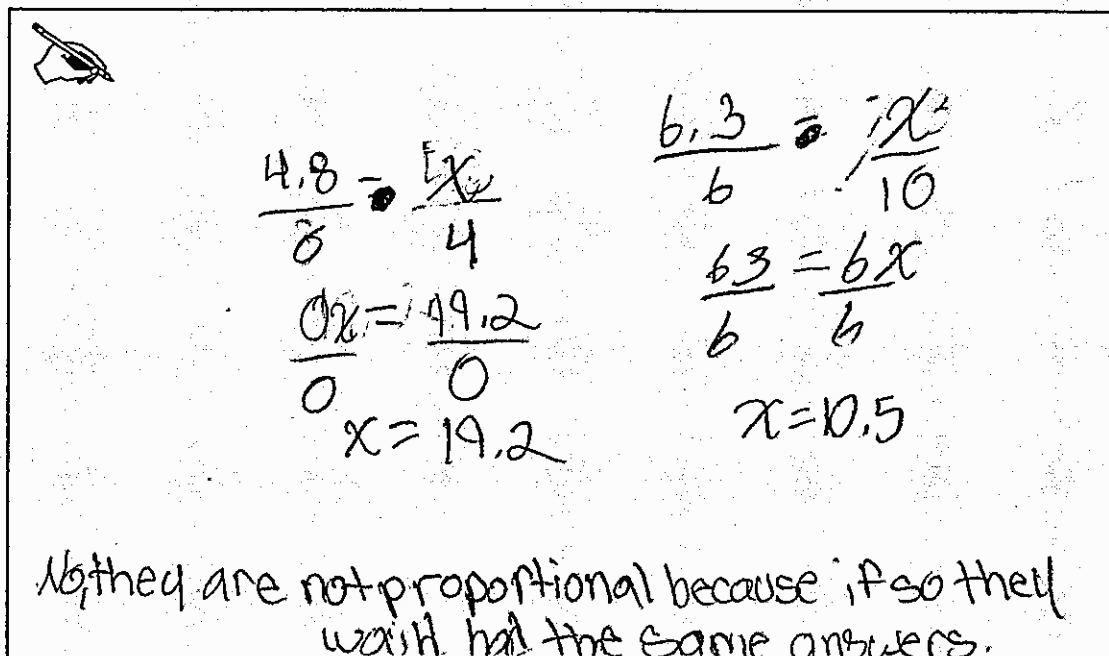 4.8/0 = x/4
0x/0 = 19.2/0
x = 19.2
6.3/6 = x/10
63/6 = 6x/6
x = 10.5
No, they are not proportional because if so they
had the same answers.